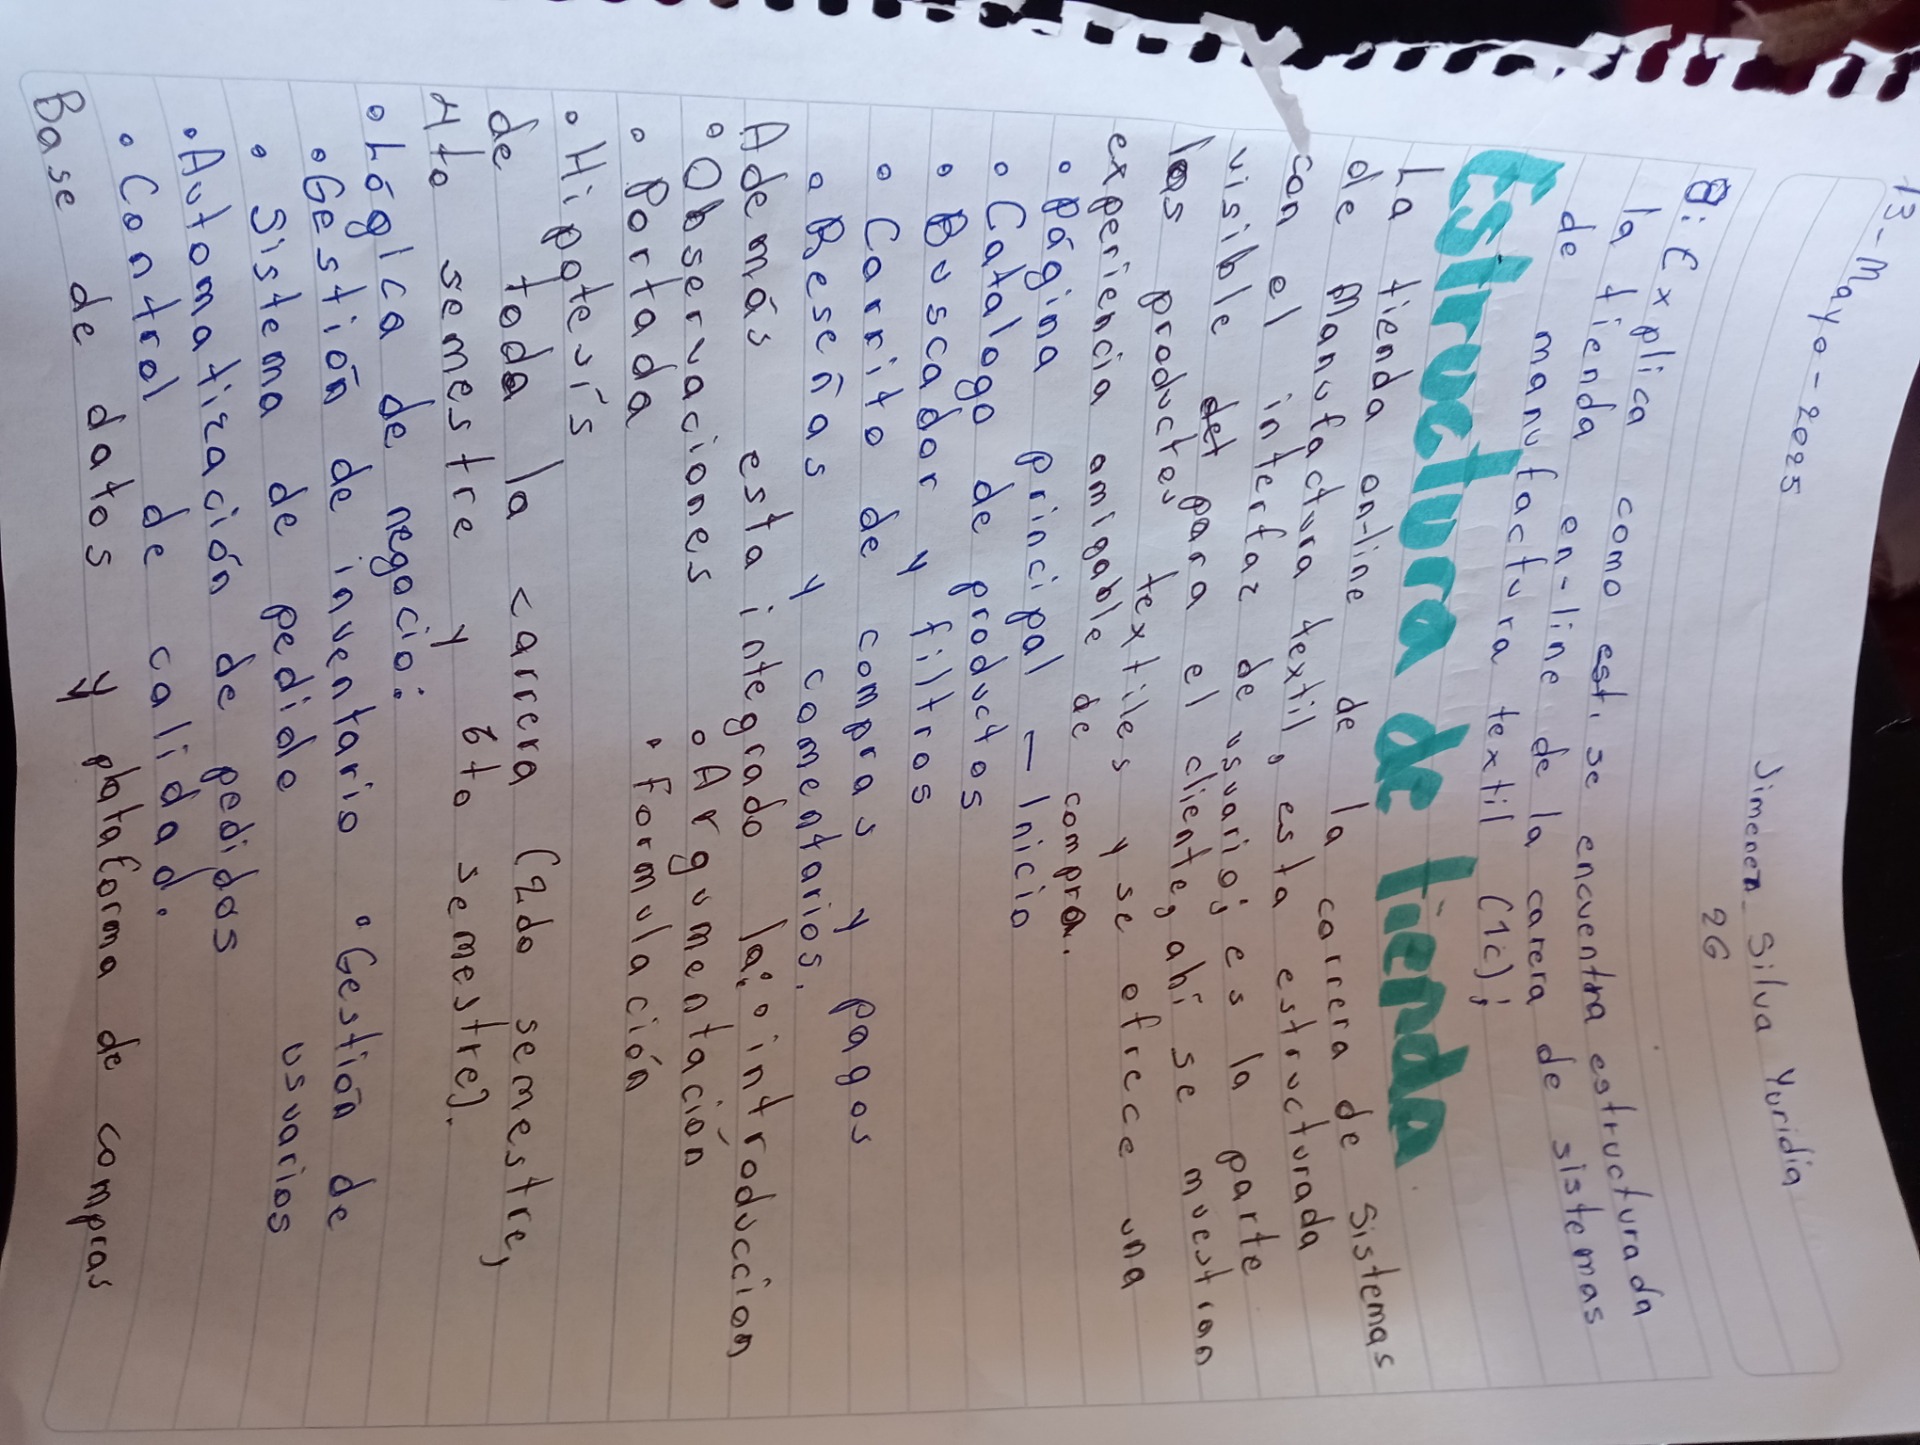 13-Mayo-2025
Jimenez Silva Yuridia
2G
8: Explica como est. se encuentra estructurada
la tienda en-line de la carera de sistemas
de manufactura textil (1c);
Estructura de tienda
La tienda on-line de la carrera de sistemas
de Manufactura textil, esta estructurada
con el interfaz de usuarios es la parte
visible det para el cliente, ahí se muestran
los productos textiles y se ofrece una
experiencia amigable de compra.
• Página principal - Inicio
• Catalogo de productos
• Buscador y filtros
• Carrito de compras y pagos
• Reseñas y comentarios.
Además esta integrado la: • introduccion
• Observaciones • Argumentación
• Portada • formulación
• Hipotesís
de toda la carrera (2do semestre,
4to semestre y 6to semestre).
• Lógica de negocio:
• Gestión de inventario • Gestión de
usuarios
• Sistema de pedido
• Automatización de pedidos
• Control de calidad.
Base de datos y plataforma de compras